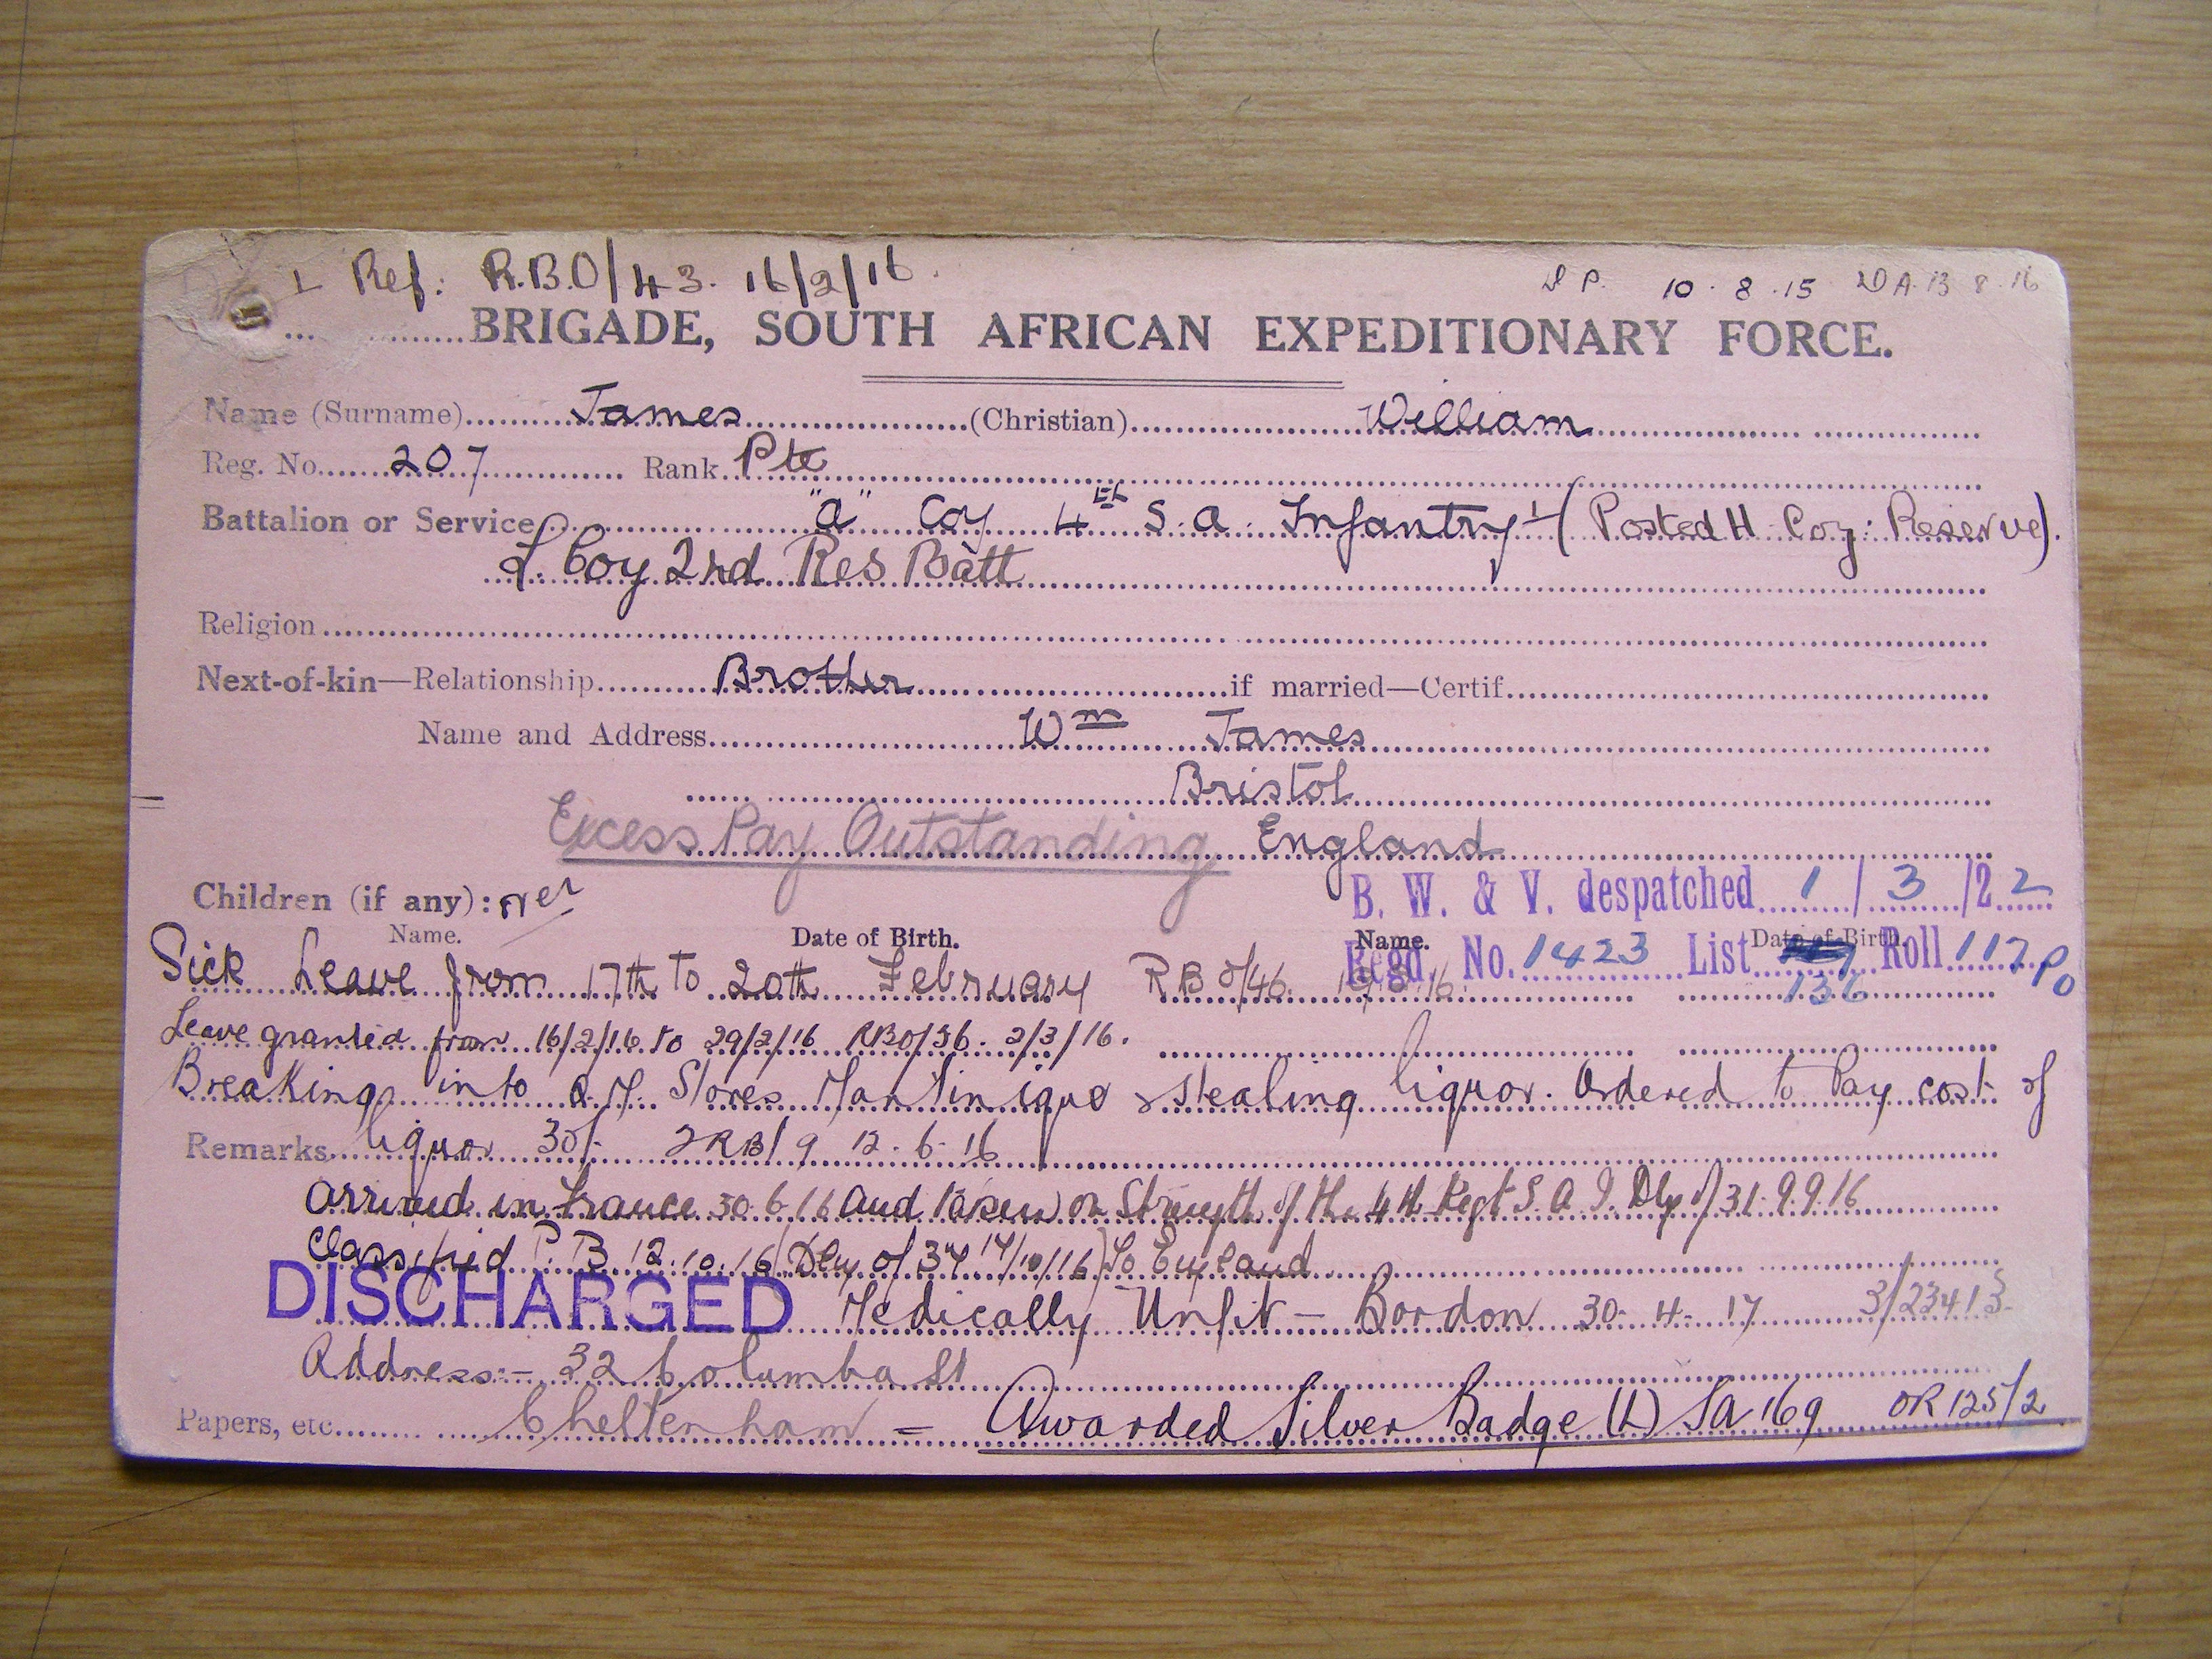 ⊥ Ref: R.B.O/43. 16/2/16.
D P. 10.8.15 DA 13 8 16
BRIGADE, SOUTH AFRICAN EXPEDITIONARY FORCE.
Name (Surname) James (Christian) William
Reg. No. 207 Rank Pte
Battalion or Service "A" Coy 4th S.A. Infantry ⊥ (Posted H Coy: Reserve).
L. Coy 2nd Res Batt
Religion
Next-of-kin—Relationship Brother if married—Certif.
Name and Address Wm James
Bristol
Excess Pay Outstanding England
Children (if any):
B. W. & V. despatched 1/3/22
Name. Date of Birth. Name. Date of Birth.
Regd. No. 1423 List 136 Roll 117 PO
Sick Leave from 17th to 20th February R B O/46.
Leave granted from 16/2/16 to 29/2/16 RBO/56. 2/3/16.
Breaking into Q.M. Stores Martinique & stealing liquor. Ordered to Pay cost of
Remarks liquor 30/- 2RB/9 12.6.16
Arrived in France 30.6.16 and taken on Strength of the 4th Regt S.A.I. Dly of 31. 9.9.16
Classified P.B. 12.10.16 (Dly of 37 14/10/16) To England
DISCHARGED Medically Unfit – Bordon 30-4-17 3/23413
Address:- 32 Columba St
Papers, etc. Cheltenham = Awarded Silver Badge (L) SA 169 OR 125/2